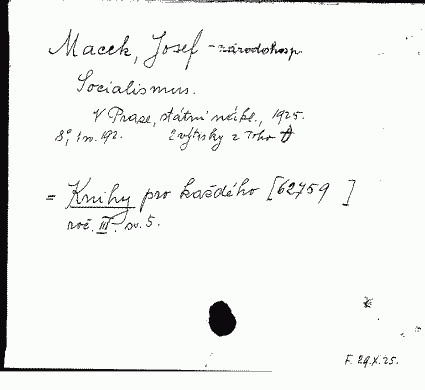 Macek, Josef - národohosp.
Socialismus.
V Praze, státní nákl., 1925.
8°, 1 sv. 192. 2 výtisky z toho
= Knihy pro každého [62759 ]
roč. III. sv. 5.
F. 29.X.25.